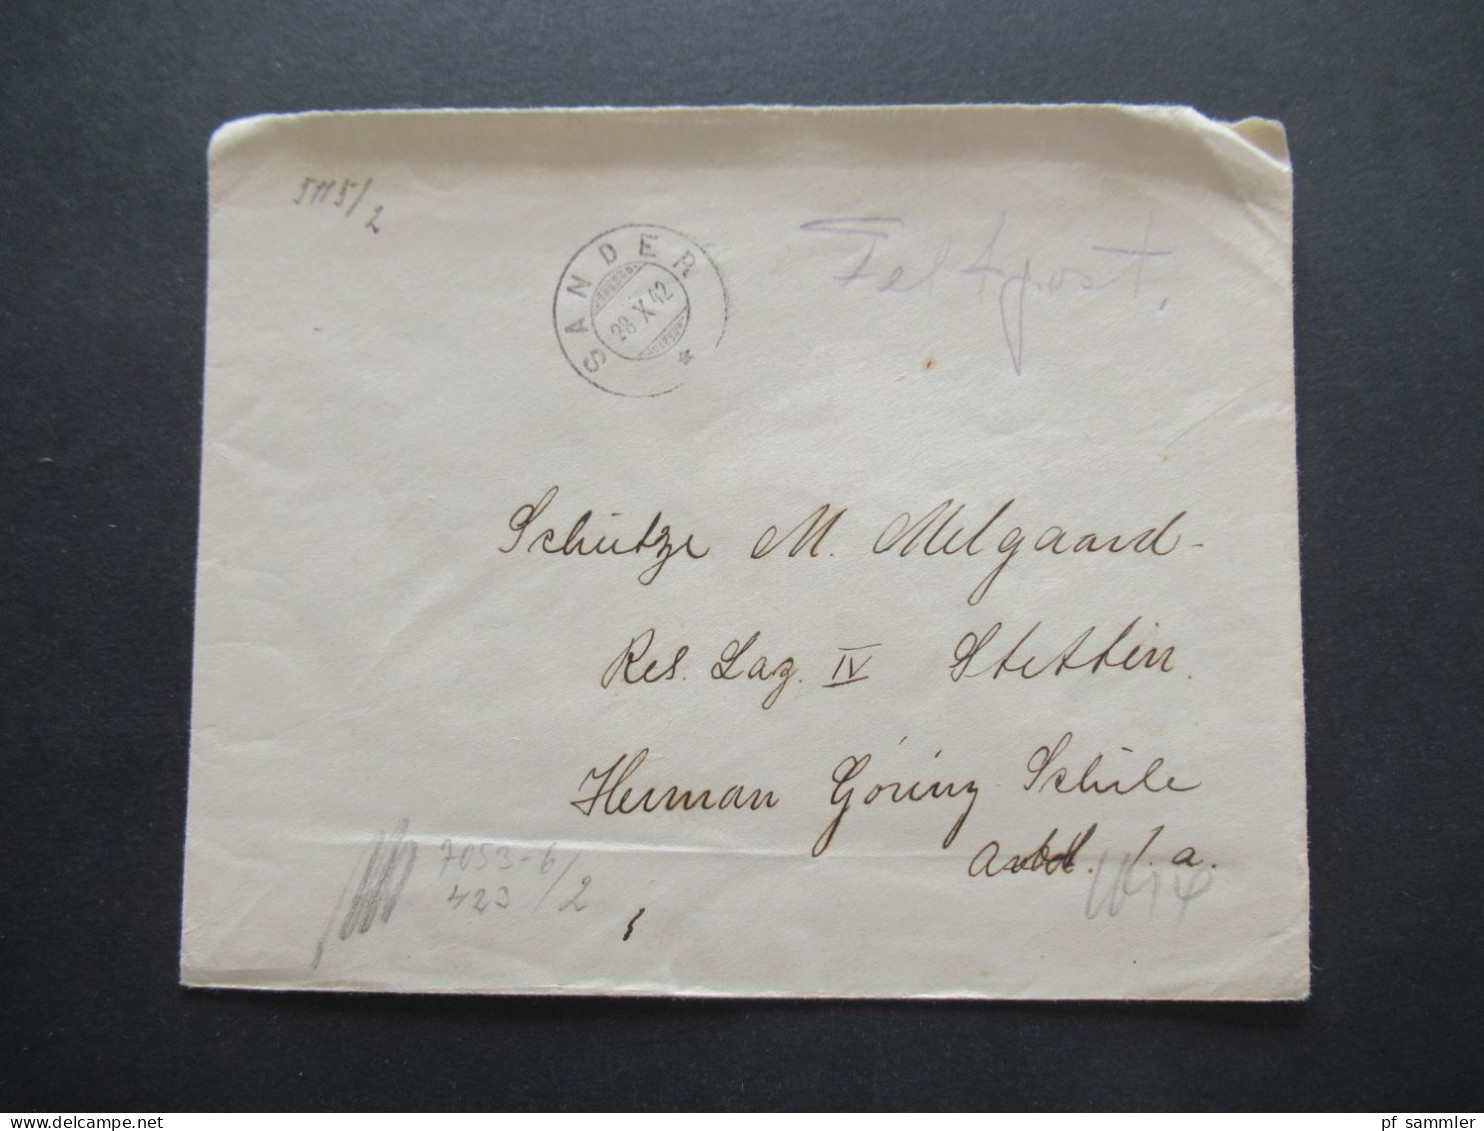 5115/2
SANDER
28 X 42
Feltpost.
Schütze M. Melgaard-
Res. Laz. IV Stettin.
Herman Göring Schule
1. a.
7053-6/2
423
delcampe.net
pf sammler